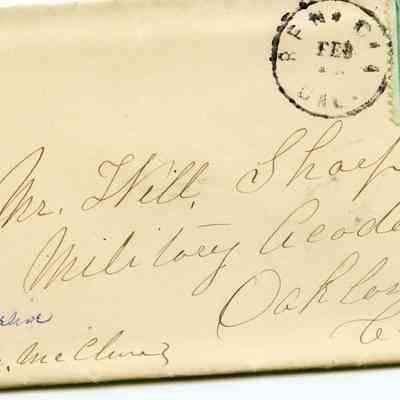 BENI CIA
FEB
CAL.
Mr. Will. Sharp
Military Acade
Oaklan
C
c. McClure's